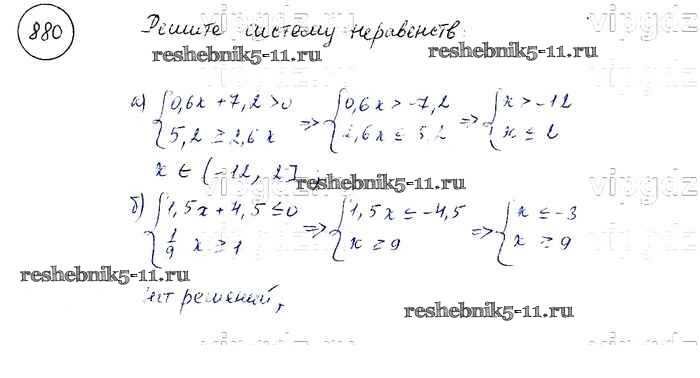 880 Решите систему неравенств
reshebnik5-11.ru reshebnik5-11.ru
а) {0,6x + 7,2 > 0 => {0,6x > -7,2 => {x > -12
{5,2 ≥ 2,6x {2,6x ≤ 5,2 {x ≤ 2
x ∈ (-12, 2] reshebnik5-11.ru
б) {1,5x + 4,5 ≤ 0 => {1,5x ≤ -4,5 => {x ≤ -3
{1/9 x ≥ 1 {x ≥ 9 {x ≥ 9
reshebnik5-11.ru
нет решений,
reshebnik5-11.ru